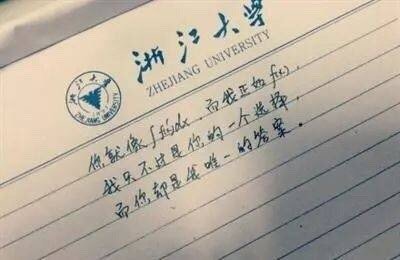 浙江大学
ZHEJIANG UNIVERSITY
浙江大学
ZHEJIANG UNIVERSITY
你就像∫f(x)dx，而我正如f(x)，
我只不过是你的一个选择，
而你却是我唯一的答案。